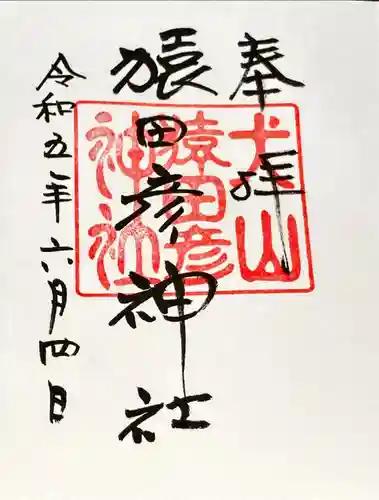 奉拝
猿田彦神社
令和五年六月四日
犬山
猿田彦
神社